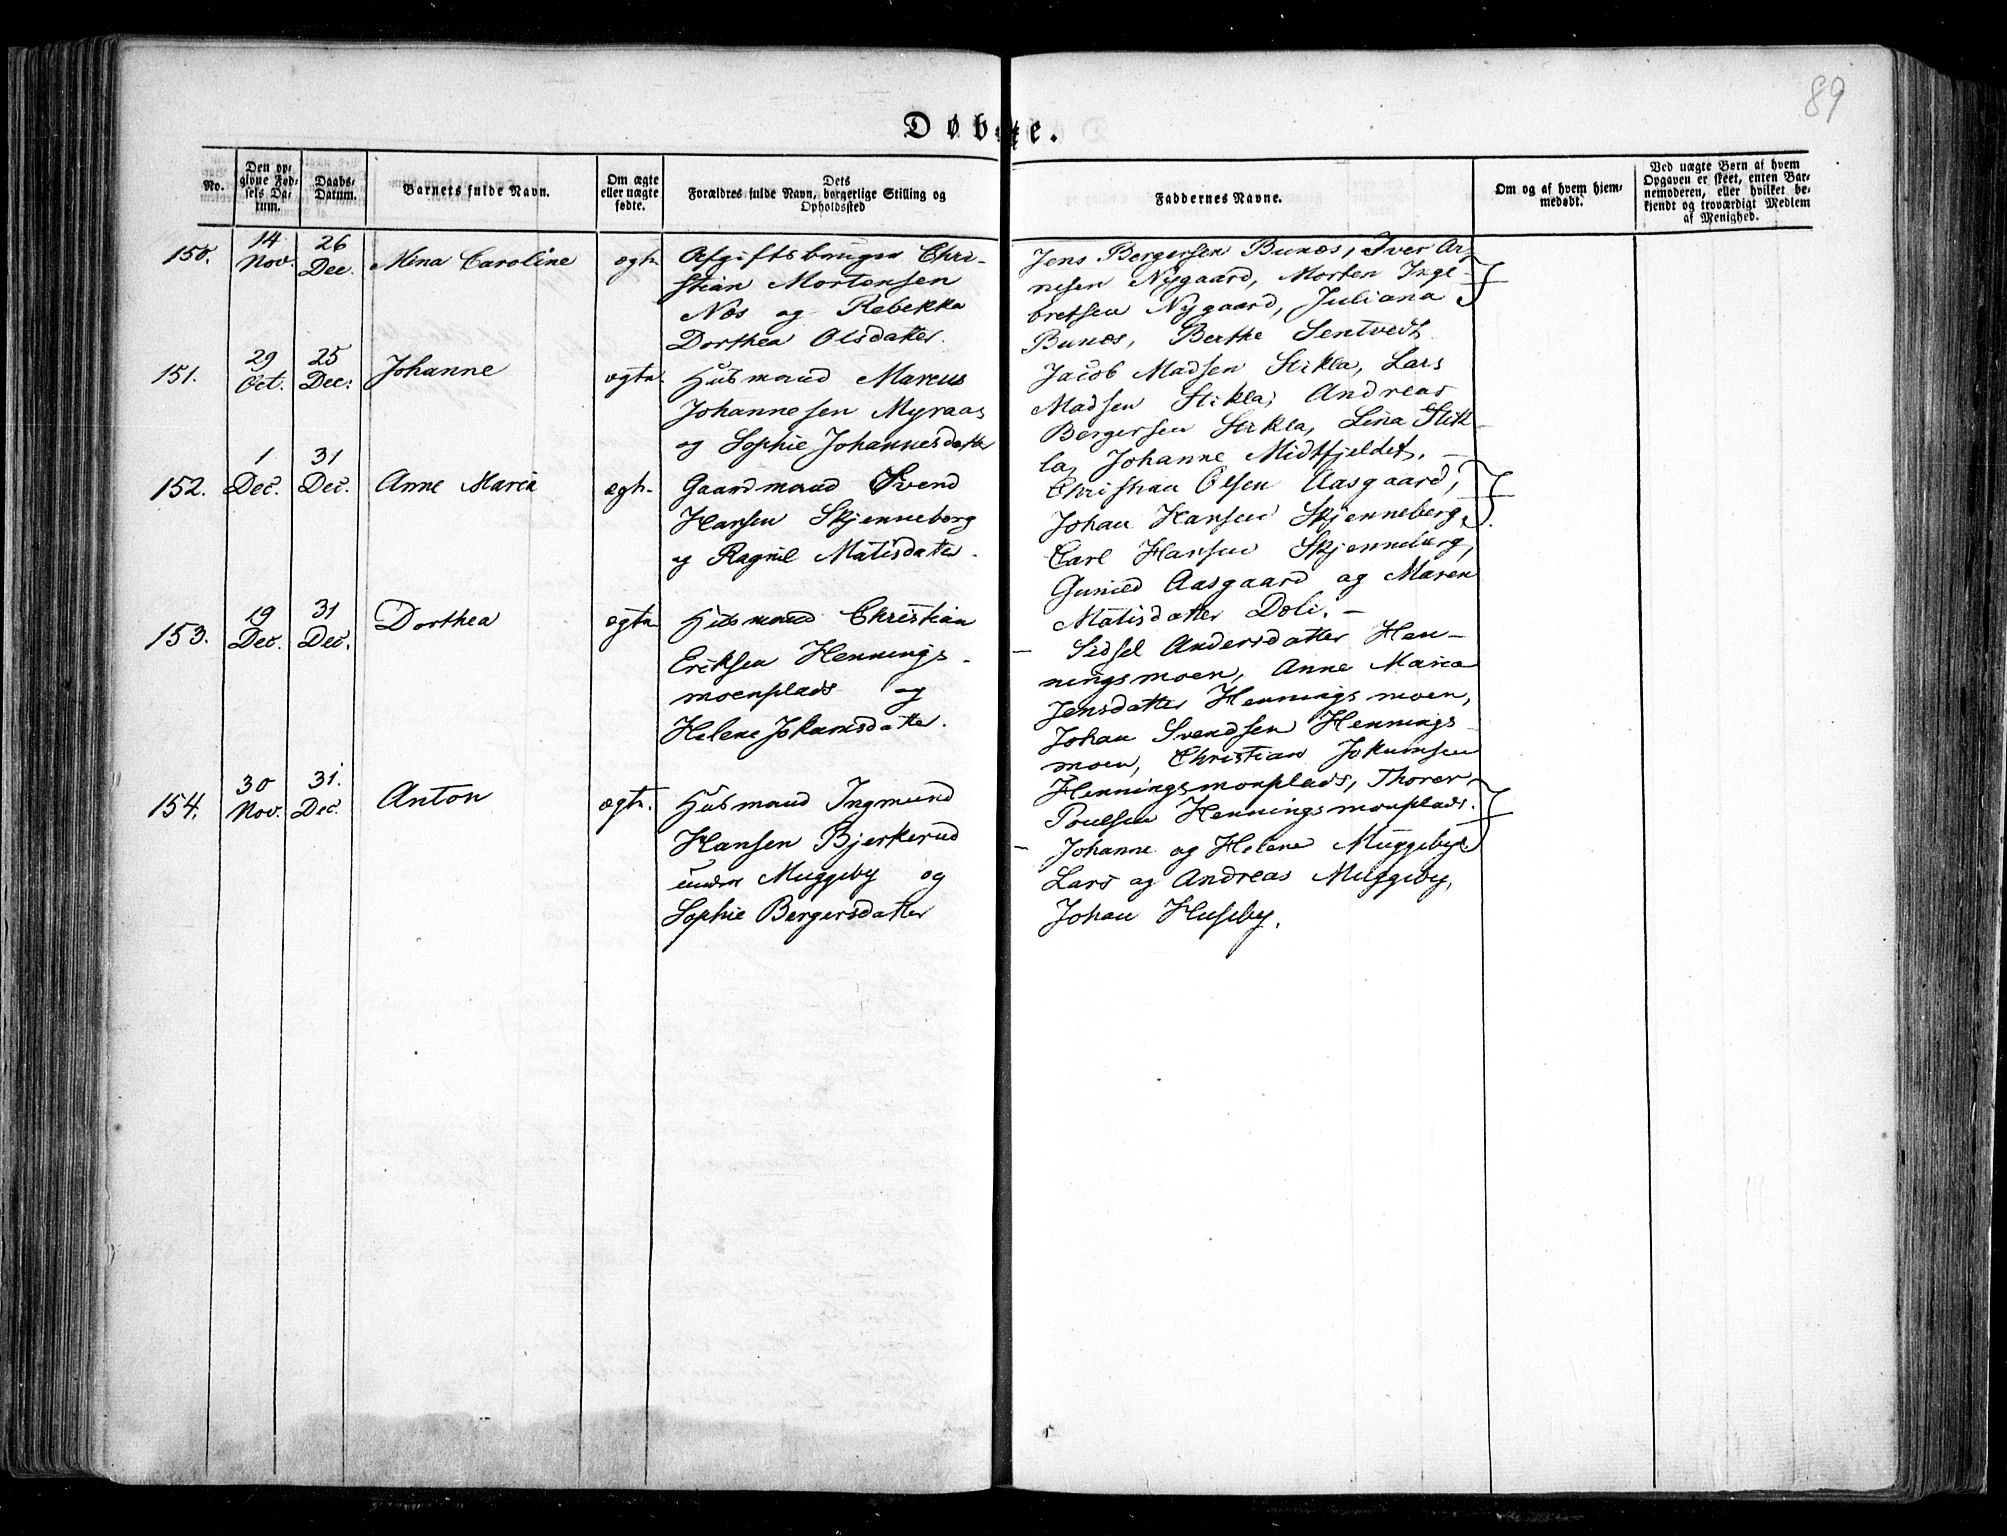 89
Døbte.
No.
Den op-
givne Fød-
sels Da-
tum.
Daabs-
Datum.
Barnets fulde Navn.
Om ægte
eller uægte
fødte.
Dets
Forældres fulde Navn, borgerlige Stilling og
Opholdssted
Faddernes Navne.
Om og af hvem hjem-
medøbt.
Ved uægte Børn af hvem
Opgaven er skeet, enten Bar-
nemoderen, eller hvilket be-
kjendt og troværdigt Medlem
af Menighed.
150.
14
Nov.
26
Dec.
Mina Caroline
ægte
Afgiftsbruger Chri-
stian Mortensen
Næs og Rebekka
Dorthea Olsdatter.
Jens Bergersen Bunæs, Iver Ar-
nesen Nygaard, Morten Inge-
bretsen Nygaard, Juliana
Bunæs, Berthe Sentvedt
151.
29
Oct.
25
Dec.
Johanne
ægte
Husmand Marcus
Johannesen Myraas
og Sophie Johannesdatter
Jacob Madsen Stikla, Lars
Madsen Stikla, Andreas
Bergersen Stikla, Lina Stik-
la, Johanne Midtfjeldet.
152.
1
Dec.
31
Dec.
Anne Maria
ægte
Gaardmand Svend
Hansen Skjenneberg
og Ragnil Matisdatter.
Christian Olsen Aasgaard,
Johan Hansen Skjenneberg,
Carl Hansen Skjenneberg,
Gunild Aasgaard og Maren
Matisdatter Doli. –
153.
19
Dec.
31
Dec.
Dorthea
ægte
Husmand Christian
Eriksen Hennings-
moenplads og
Helene Jokumsdatter.
– Sidsel Andersdatter Hen-
ningsmoen, Anne Maria
Jensdatter Henningsmoen,
Johan Svendsen Hennings-
moen, Christian Jokumsen
Henningsmonplads, Thorer
Poulsen Henningsmonplads.
154.
30
Nov.
31.
Dec.
Anton
ægte.
Husmand Ingmund
Hansen Bjerkerud
under Muggeby og
Sophie Bergersdatter
– Johanne og Helene Muggeby,
Lars og Andreas Muggeby,
Johan Huseby.